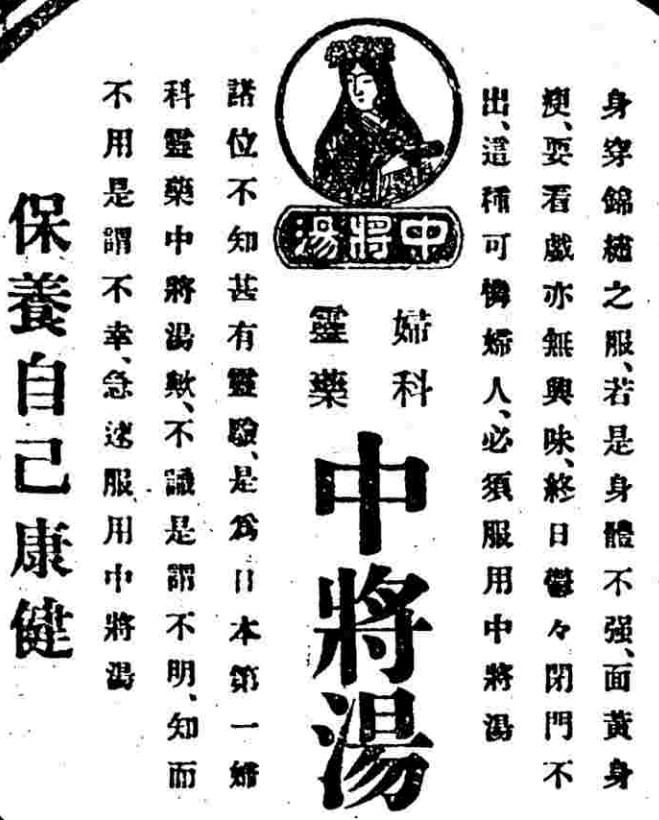 身穿錦繡之服、若是身體不强、面黃身
瘦、要看戲亦無興味、終日鬱々閉門不
出、這種可憐婦人、必須服用中將湯
中將湯
婦科
靈藥
中將湯
諸位不知甚有靈驗、是爲日本第一婦
科靈藥中將湯歟、不識是謂不明、知而
不用是謂不幸、急速服用中將湯
保養自己康健